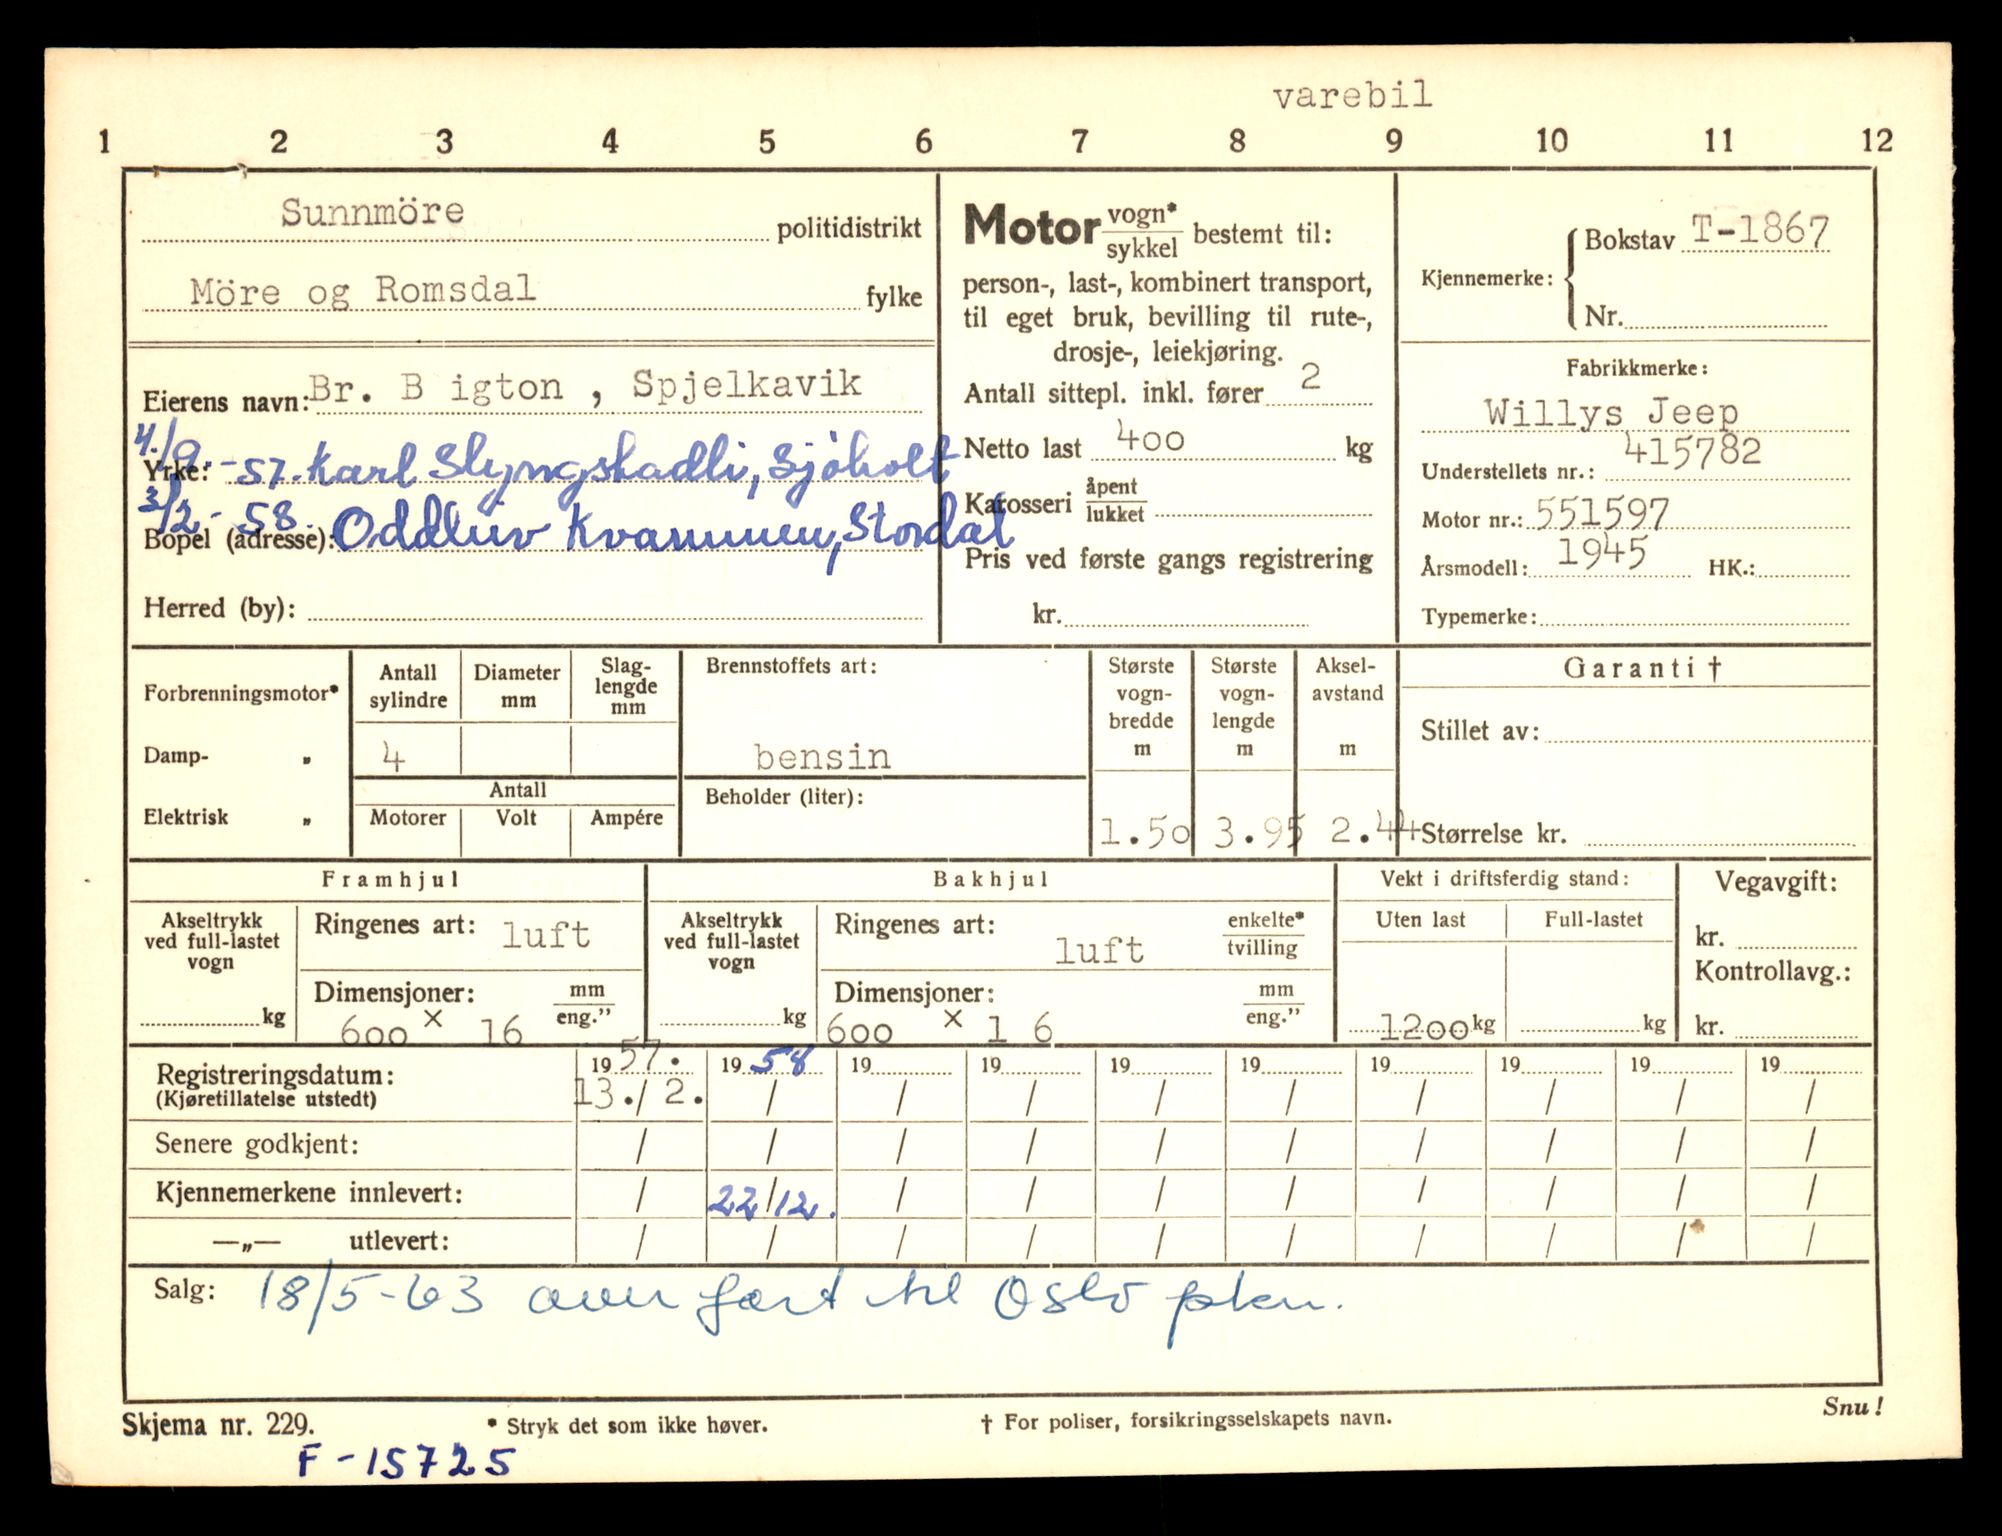 varebil
1 2 3 4 5 6 7 8 9 10 11 12
Sunnmöre politidistrikt
Möre og Romsdal fylke
Eierens navn: Br. B igton , Spjelkavik
4./9.-57. Karl Slyngstadli, Sjøholt
Yrke:
3/2-58. Oddleiv Kvammen, Stordal
Bopel (adresse):
Herred (by):
Motor vogn* / sykkel bestemt til:
person-, last-, kombinert transport,
til eget bruk, bevilling til rute-,
drosje-, leiekjøring.
Antall sittepl. inkl. fører 2
Netto last 400 kg
Karosseri åpent / lukket
Pris ved første gangs registrering
kr.
Kjennemerke: Bokstav T-1867
Nr.
Fabrikkmerke:
Willys Jeep
Understellets nr.: 415782
Motor nr.: 551597
Årsmodell: 1945 HK.:
Typemerke:
Forbrenningsmotor*
Damp- „
Elektrisk „
Antall sylindre 4
Diameter mm
Slag-lengde mm
Antall
Motorer Volt Ampére
Brennstoffets art:
bensin
Beholder (liter):
Største vogn-bredde m 1.50
Største vogn-lengde m 3.95
Aksel-avstand m 2.44
Garanti †
Stillet av:
Størrelse kr.
Framhjul
Akseltrykk ved full-lastet vogn kg
Ringenes art: luft
Dimensjoner: mm / eng."
600 × 16
Bakhjul
Akseltrykk ved full-lastet vogn kg
Ringenes art: luft enkelte* / tvilling
Dimensjoner: mm / eng."
600 × 1 6
Vekt i driftsferdig stand:
Uten last Full-lastet
1200 kg kg
Vegavgift:
kr.
Kontrollavg.:
kr.
Registreringsdatum: 19 57. 19 58 19 19 19 19 19 19 19 19
(Kjøretillatelse utstedt) 13./2. / / / / / / / / /
Senere godkjent: / / / / / / / / / /
Kjennemerkene innlevert: / 22/12. / / / / / / / /
—„— utlevert: / / / / / / / / / /
Salg: 18/5-63 overført til Oslo pkm.
Snu!
Skjema nr. 229. * Stryk det som ikke høver. † For poliser, forsikringsselskapets navn.
F-15725